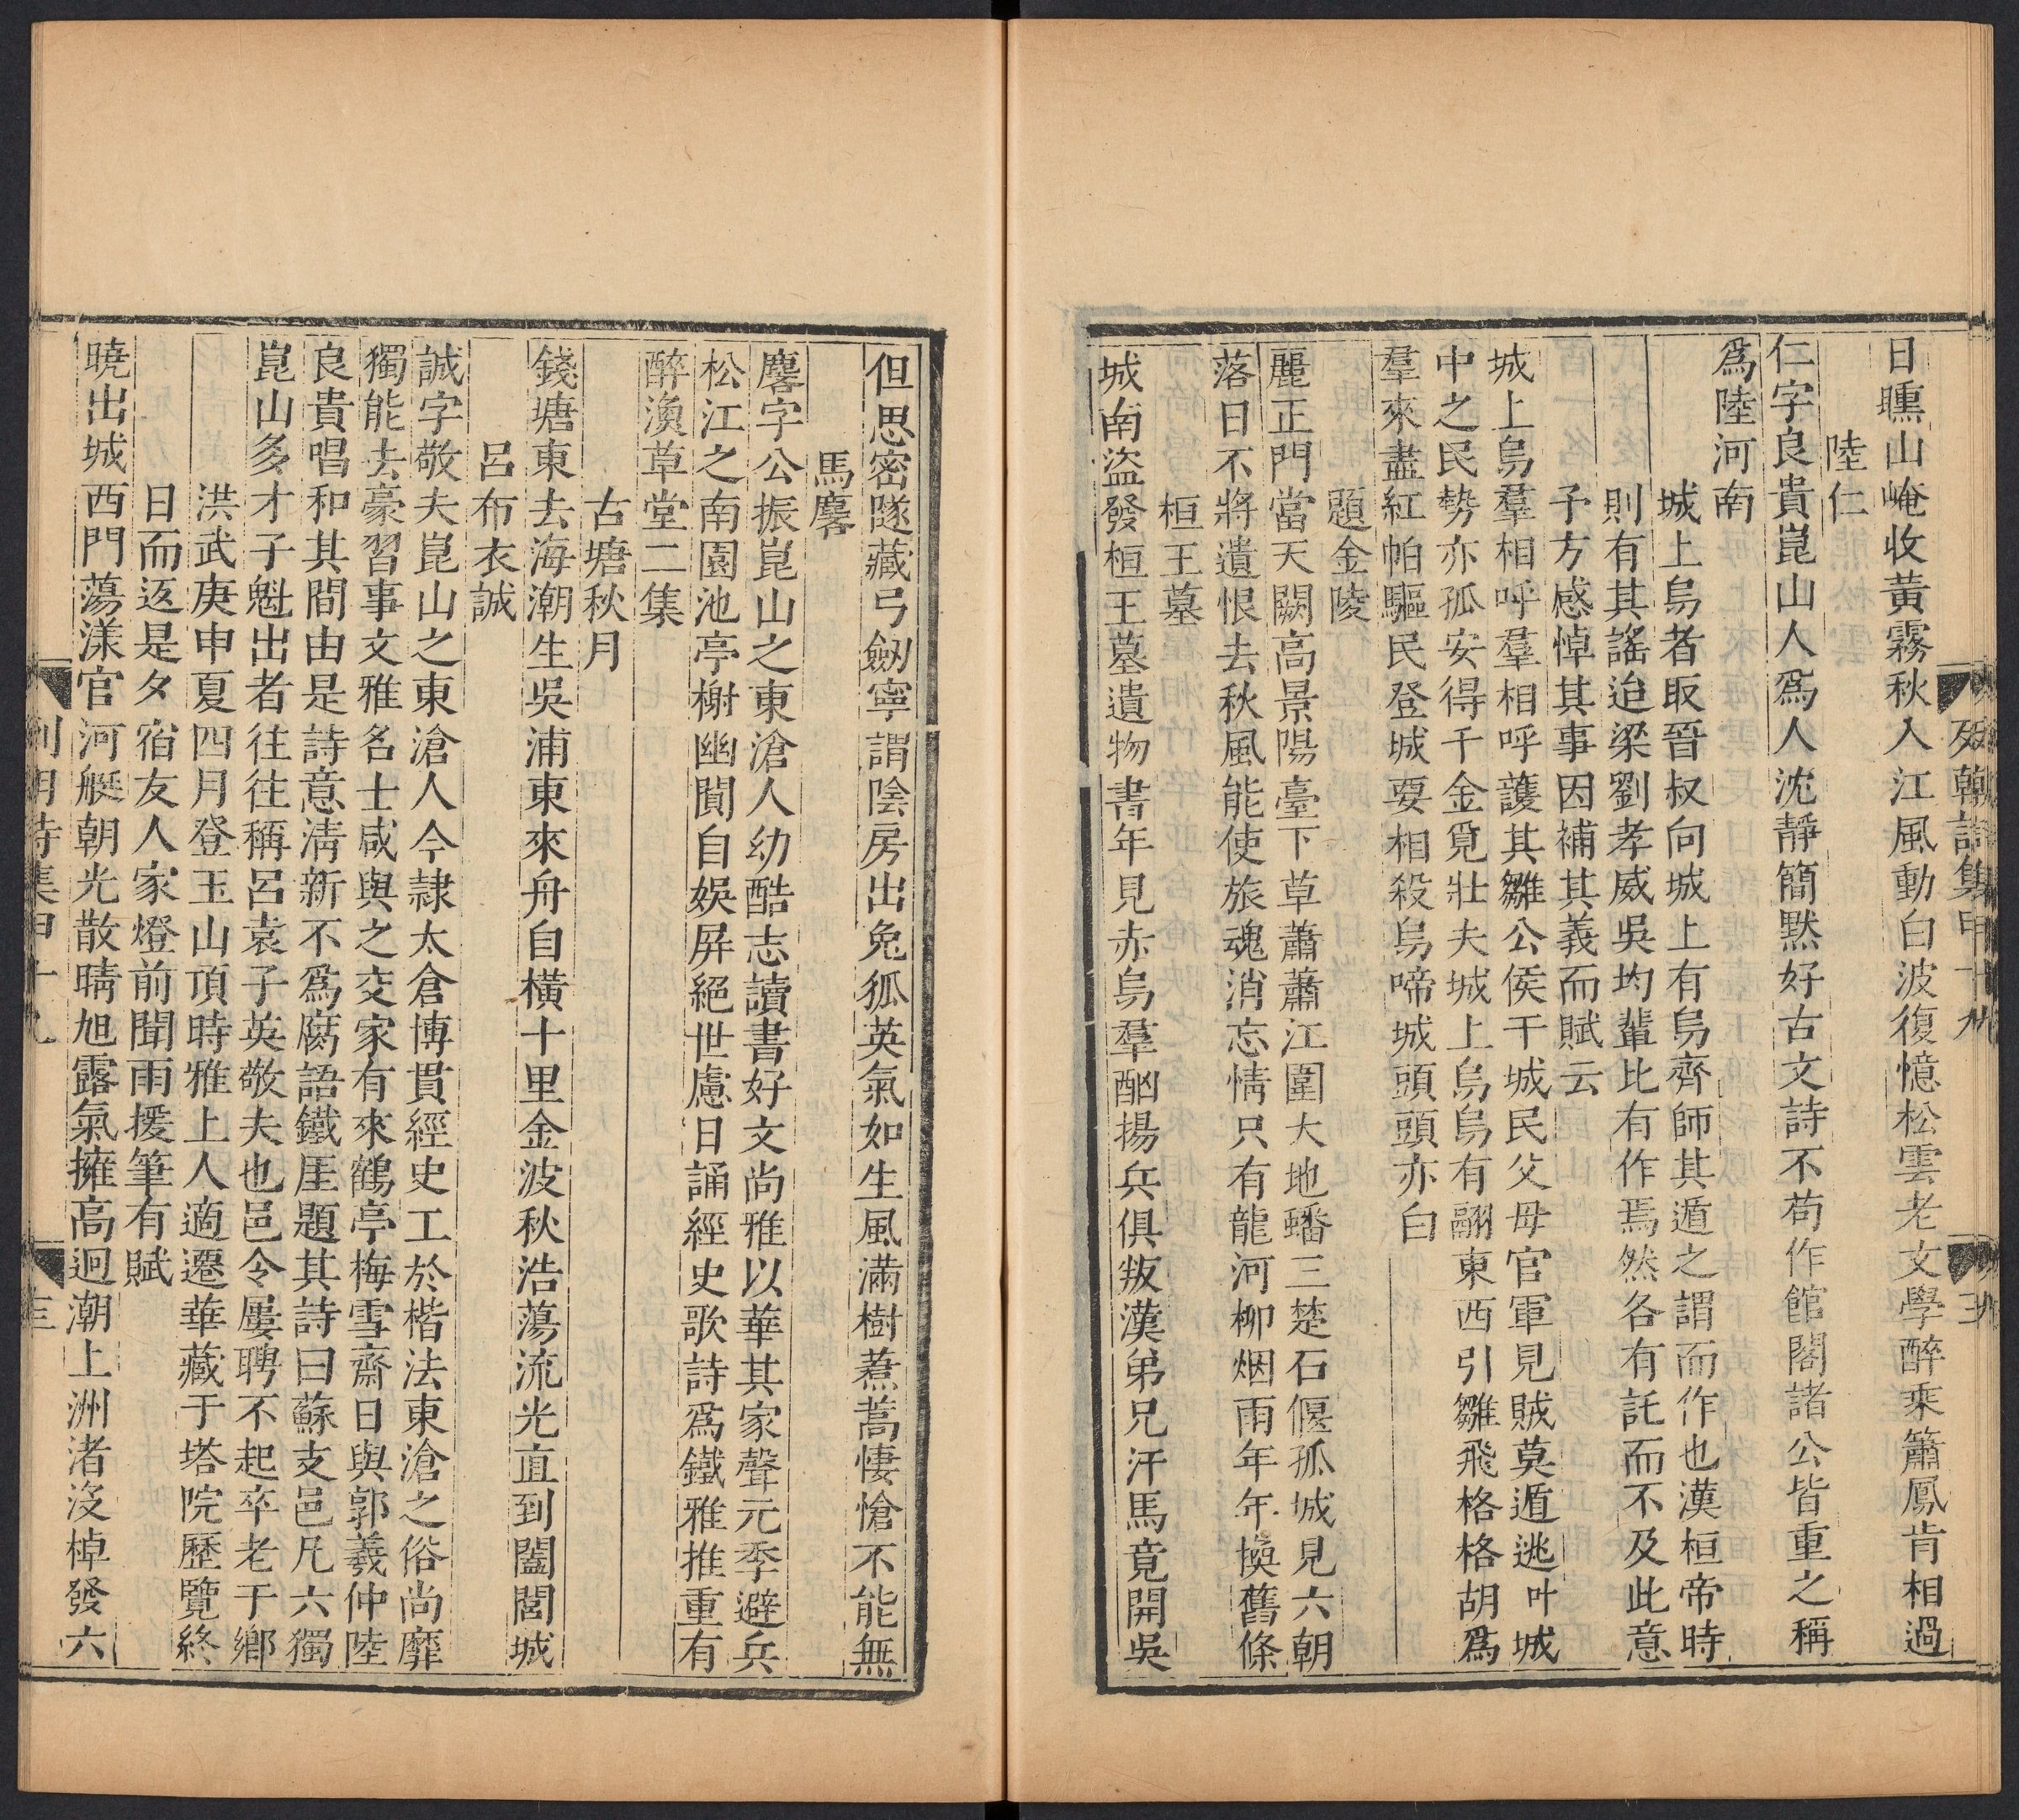 日曛山崦收黃霧秋入江風動白波復憶松雲老文學醉乘簫鳳肯相過
陸仁
仁字良貴崑山人爲人沈靜簡默好古文詩不苟作館閣諸公皆重之稱
爲陸河南
城上烏者取晉叔向城上有烏齊師其遁之謂而作也漢桓帝時
則有其謠迨梁劉孝威吳均輩比有作焉然各有託而不及此意
予方感悼其事因補其義而賦云
城上烏羣相呼羣相呼護其雛公侯干城民父母官軍見賊莫遁逃叶城
中之民勢亦孤安得千金覓壯夫城上烏烏有翮東西引雛飛格格胡爲
羣來盡紅帕驅民登城要相殺烏啼城頭頭亦白
題金陵
麗正門當天闕高景陽臺下草蕭蕭江圍大地蟠三楚石偃孤城見六朝
落日不將遺恨去秋風能使旅魂消忘情只有龍河柳烟雨年年換舊條
桓王墓
城南盜發桓王墓遺物書年見赤烏羣酗揚兵俱叛漢弟兄汗馬竟開吳
但思密隧藏弓劒寧謂陰房出兔狐英氣如生風滿樹焄蒿悽愴不能無
馬麐
麐字公振崑山之東滄人幼酷志讀書好文尚雅以華其家聲元季避兵
松江之南園池亭榭幽閴自娛屛絕世慮日誦經史歌詩爲鐵雅推重有
醉漁草堂二集
古塘秋月
錢塘東去海潮生吳浦東來舟自橫十里金波秋浩蕩流光直到闔閭城
呂布衣誠
誠字敬夫崑山之東滄人今隷太倉博貫經史工於楷法東滄之俗尚靡
獨能去豪習事文雅名士咸與之交家有來鶴亭梅雪齋日與郭羲仲陸
良貴唱和其間由是詩意淸新不爲腐語鐵厓題其詩曰蘇支邑凡六獨
崑山多才子魁出者往往稱呂袁子英敬夫也邑令屢聘不起卒老于鄉
洪武庚申夏四月登玉山頂時雅上人適遷華藏于塔院歷覽終
日而返是夕宿友人家燈前聞雨援筆有賦
曉出城西門蕩漾官河艇朝光散晴旭露氣擁高迥潮上洲渚沒棹發六